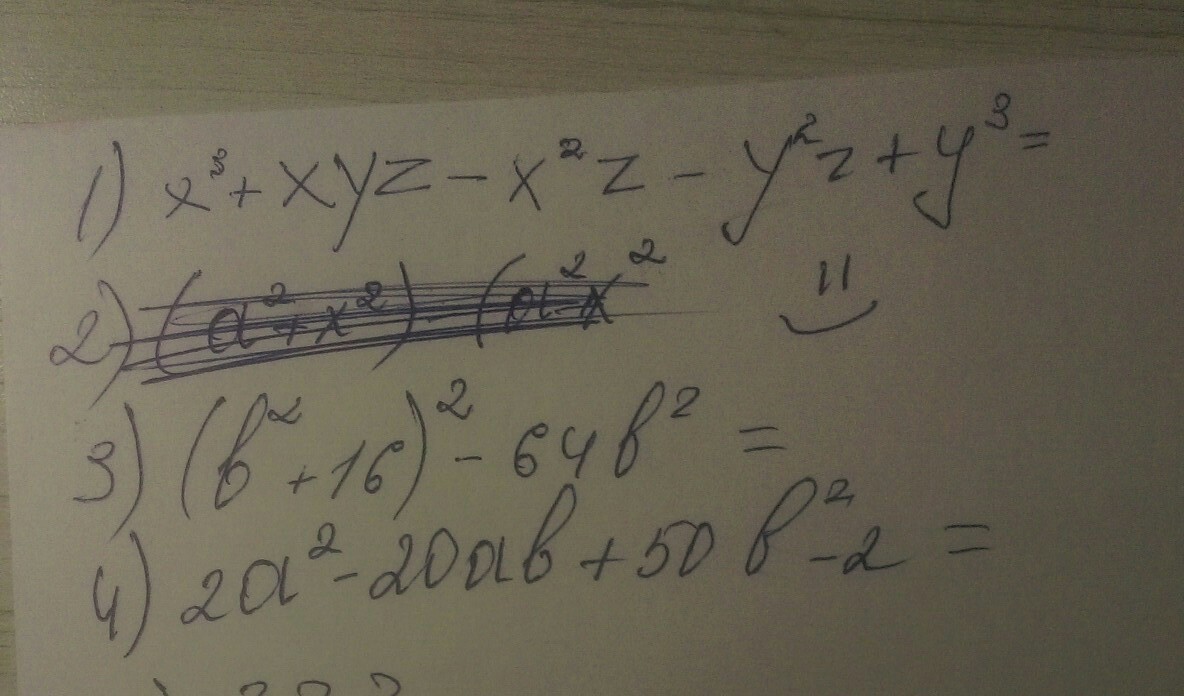 1) x³ + xyz - x²z - y²z + y³ =
2) (a² + x²) - (a² - x²
3) (b² + 16)² - 64b² =
4) 2a² - 20ab + 50b² - 2 =